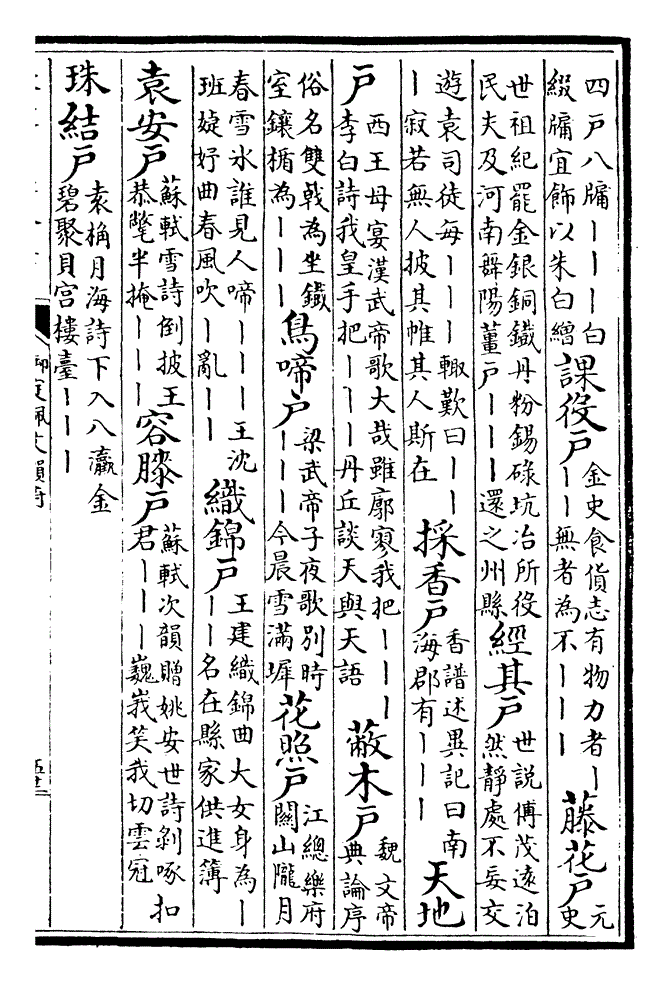 四戸八牖｜｜｜白綴牖宜飾以朱白繒課役戸金史食貨志有物力者｜｜｜無者為不｜｜｜藤花戸元史
世祖紀罷金銀銅鐵丹粉錫碌坑冶所役民夫及河南舞陽薑戸｜｜｜還之州縣經其戸世説傅茂遠泊然靜處不妄交
遊袁司徒每｜｜｜輙歎曰｜｜｜寂若無人披其帷其人斯在採香戸香譜述異記曰南海郡有｜｜｜天地
戸西王母宴漢武帝歌大哉雖廓寥我把｜｜｜李白詩我皇手把｜｜｜丹丘談天與天語蔽木戸魏文帝典論序
俗名雙戟為坐鐵室鑲楯為｜｜｜鳥啼戸梁武帝子夜歌別時｜｜｜今晨雪滿墀花照戸江總樂府關山隴月
春雪冰誰見人啼｜｜｜王沈班婕妤曲春風吹｜亂｜｜織錦戸王建織錦曲大女身為｜｜｜名在縣家供進簿
袁安戸蘇軾雪詩倒披王恭氅半掩｜｜｜容膝戸蘇軾次韻贈姚安世詩剝啄扣君｜｜｜巍峩笑我切雲冠
珠結戸袁桷月海詩下入八瀛金碧聚貝宫樓臺｜｜｜